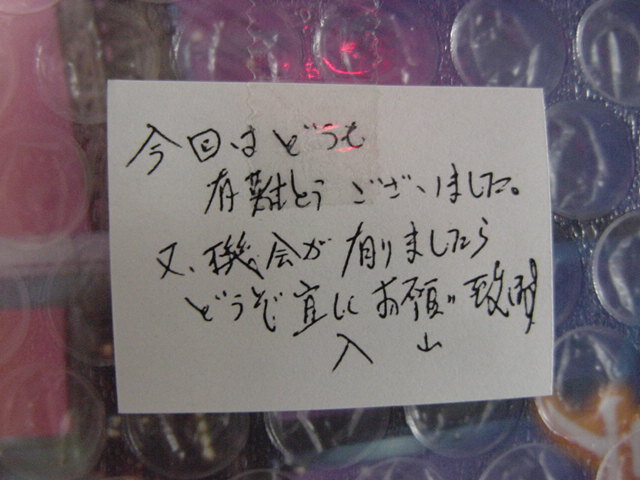 今回はどうも
有難とうございました。
又、機会が有りましたら
どうぞ宜しくお願い致します
入山